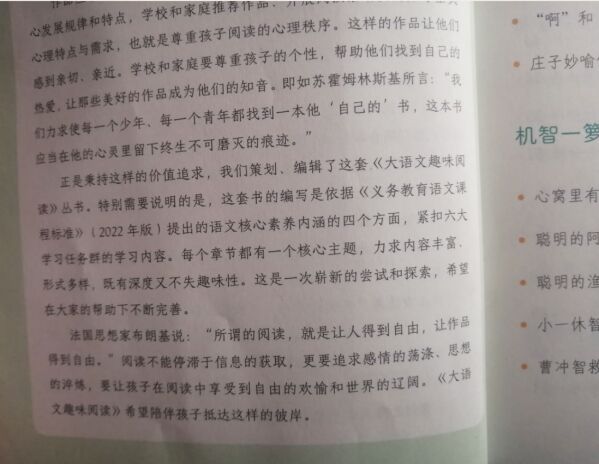 心发展规律和特点，学校和家庭推荐作品、开展阅
心理特点与需求，也就是尊重孩子阅读的心理秩序。这样的作品让他们
感到亲切、亲近。学校和家庭要尊重孩子的个性，帮助他们找到自己的
热爱，让那些美好的作品成为他们的知音。即如苏霍姆林斯基所言：“我
们力求使每一个少年、每一个青年都找到一本他‘自己的’书，这本书
应当在他的心灵里留下终生不可磨灭的痕迹。”
正是秉持这样的价值追求，我们策划、编辑了这套《大语文趣味阅
读》丛书。特别需要说明的是，这套书的编写是依据《义务教育语文课
程标准》（2022年版）提出的语文核心素养内涵的四个方面，紧扣六大
学习任务群的学习内容。每个章节都有一个核心主题，力求内容丰富、
形式多样，既有深度又不失趣味性。这是一次崭新的尝试和探索，希望
在大家的帮助下不断完善。
法国思想家布朗基说：“所谓的阅读，就是让人得到自由，让作品
得到自由。”阅读不能停滞于信息的获取，更要追求感情的荡涤、思想
的淬炼，要让孩子在阅读中享受到自由的欢愉和世界的辽阔。《大语
文趣味阅读》希望陪伴孩子抵达这样的彼岸。
“啊”和
庄子妙喻
机智一箩
心窝里有
聪明的阿
聪明的渔
小一休智
曹冲智救